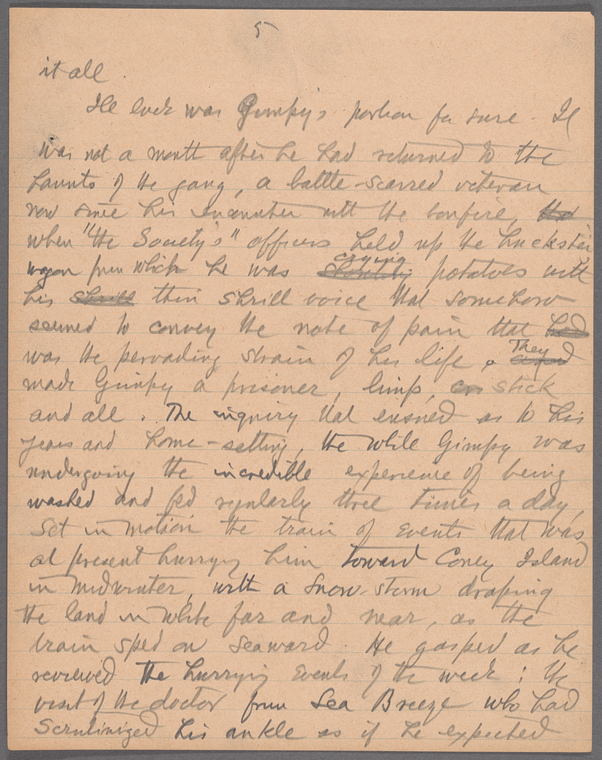 5
it all.
Ill luck was Gimpy's portion for sure. It
was not a month after he had returned to the
haunts of the gang, a battle-scarred veteran
now since his encounter with the bonfire,
when "the Society's" officers held up the huckster
wagon from which he was crying potatoes with
his shrill thin shrill voice that somehow
seemed to convey the note of pain that had
was the pervading strain of his life. They
made Gimpy a prisoner, limp, stick
and all. The inquiry that ensued as to his
years and home-setting, the while Gimpy was
undergoing the incredible experience of being
washed and fed regularly three times a day,
set in motion the train of events that was
at present hurrying him toward Coney Island
in midwinter, with a snow-storm draping
the land in white far and near, as the
train sped on seaward. He gasped as he
reviewed the hurrying events of the week: the
visit of the doctor from Sea Breeze who had
scrutinized his ankle as if he expected